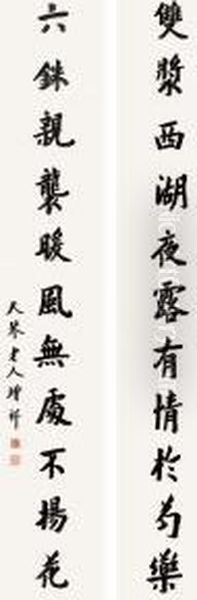 雙槳西湖夜露有情於勺樂
六銖親襲暖風無處不揚花
天琴老人增祥